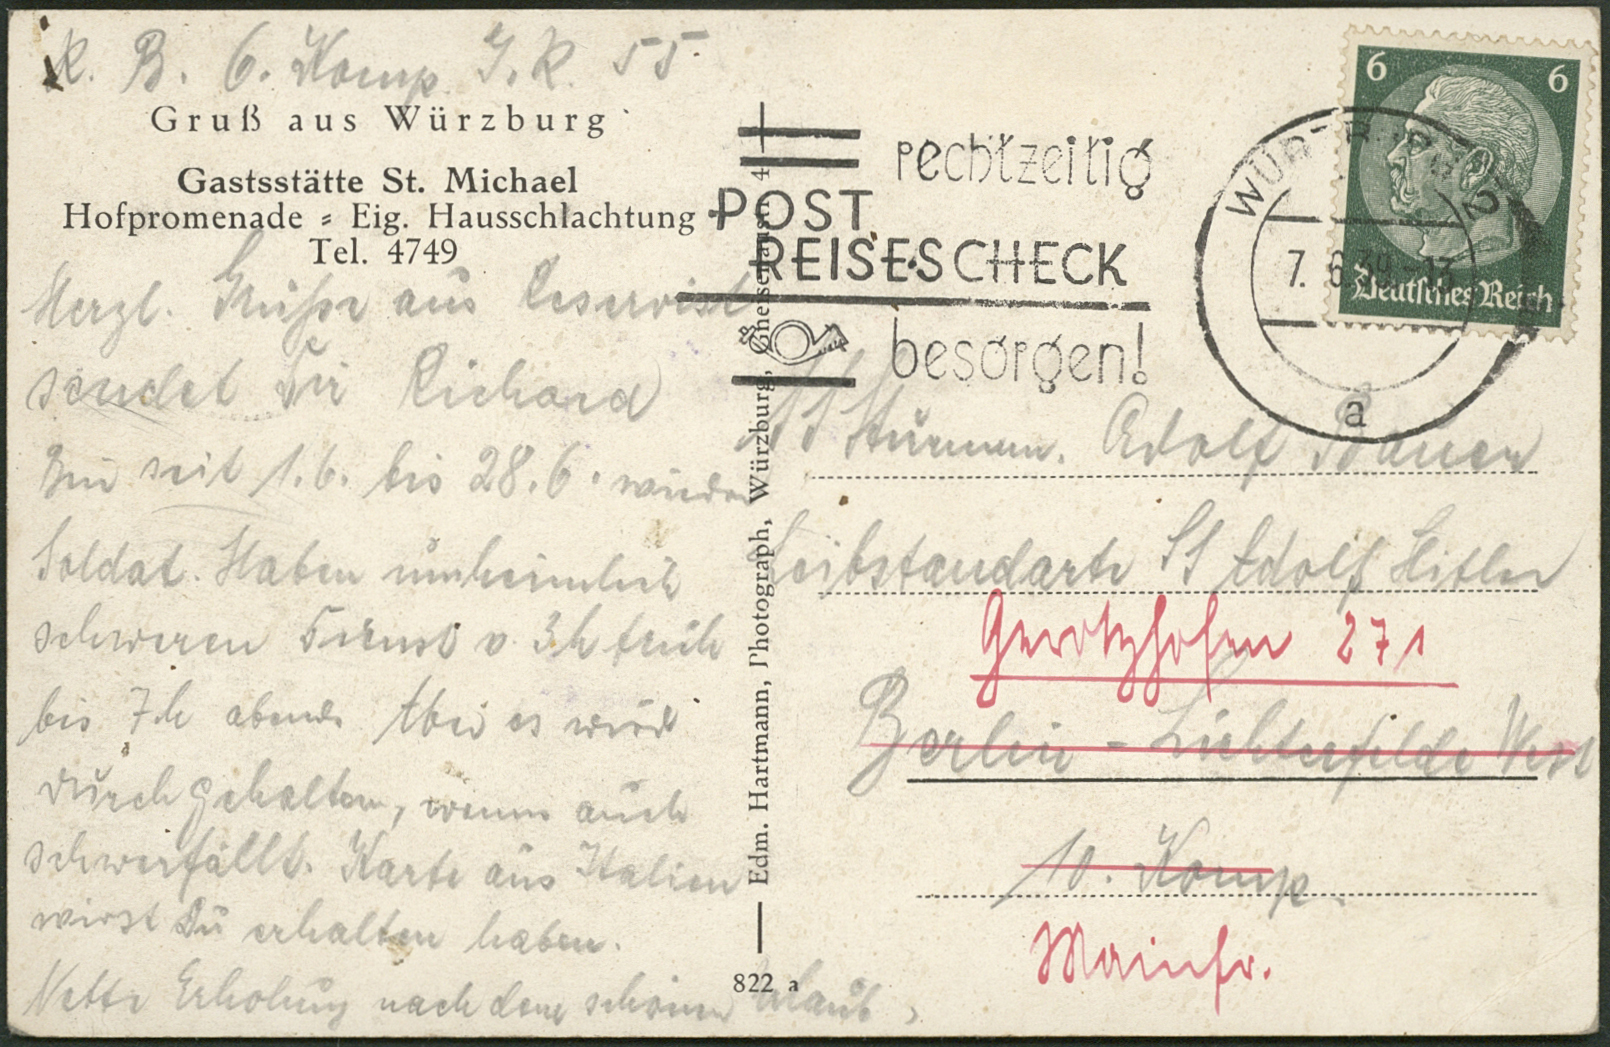 R. B. 6. Komp I. R. 55.
Gruß aus Würzburg
Gastsstätte St. Michael
Hofpromenade = Eig. Hausschlachtung
Tel. 4749
Herzl. Grüße aus Reservist
sendet Dir Richard
Bin seit 1.6. bis 28.6. wieder
Soldat. Haben unheimlich
schweren Dienst v 3h früh
bis 7h abends Aber es wird
durchgehalten, wenn auch
schwerfällt. Karte aus Italien
wirst Du erhalten haben.
Nette Erholung nach dem schönen Urlaub,
Edm. Hartmann, Photograph, Würzburg, Gneisenaustr. 4
822 a
rechtzeitig
POST
REISESCHECK
besorgen!
WÜRZBURG 2
7. 6. 39.-13
a
6 6
Deutsches Reich
SS Sturmm. Adolf Bauer
Leibstandarte SS Adolf Hitler
Gerolzhofen 271
Berlin - Lichterfelde West
10. Komp.
Mainfr.